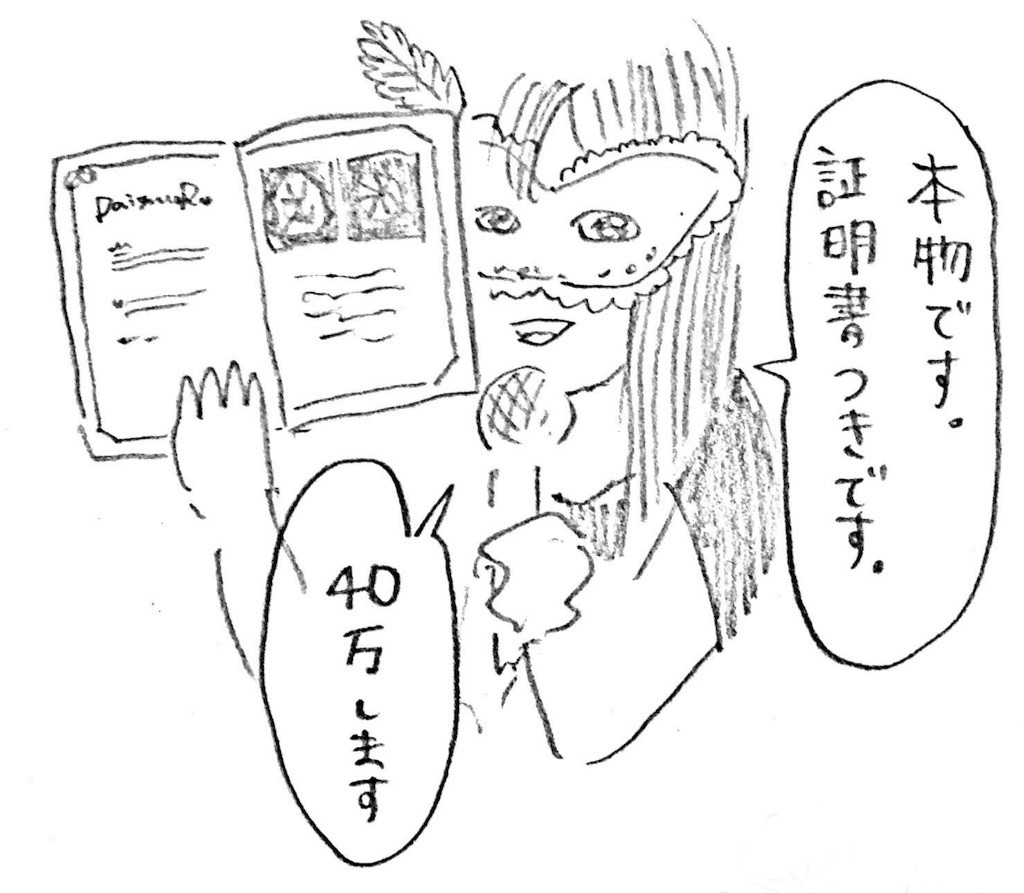 本物です。
証明書つきです。
40万します